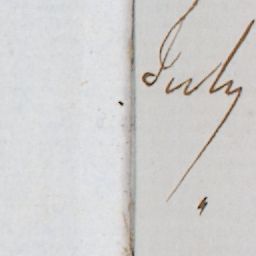 July
"